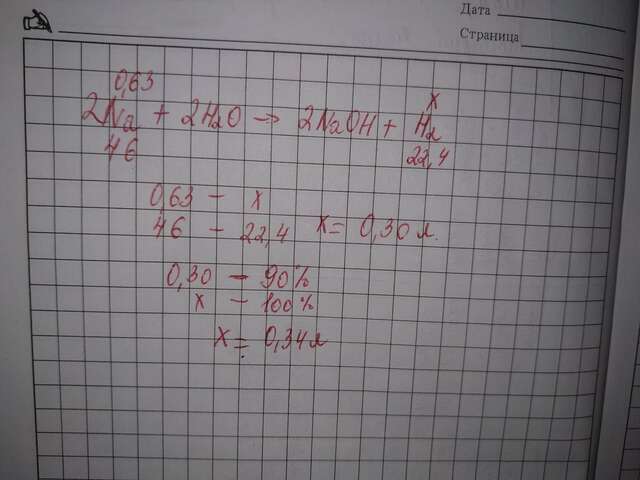 Дата
Страница
0,63 x
2Na + 2H2O → 2NaOH + H2
46 22,4
0,63 – x
46 – 22,4 x = 0,30 л.
0,30 – 90%
x – 100%
x = 0,34 л